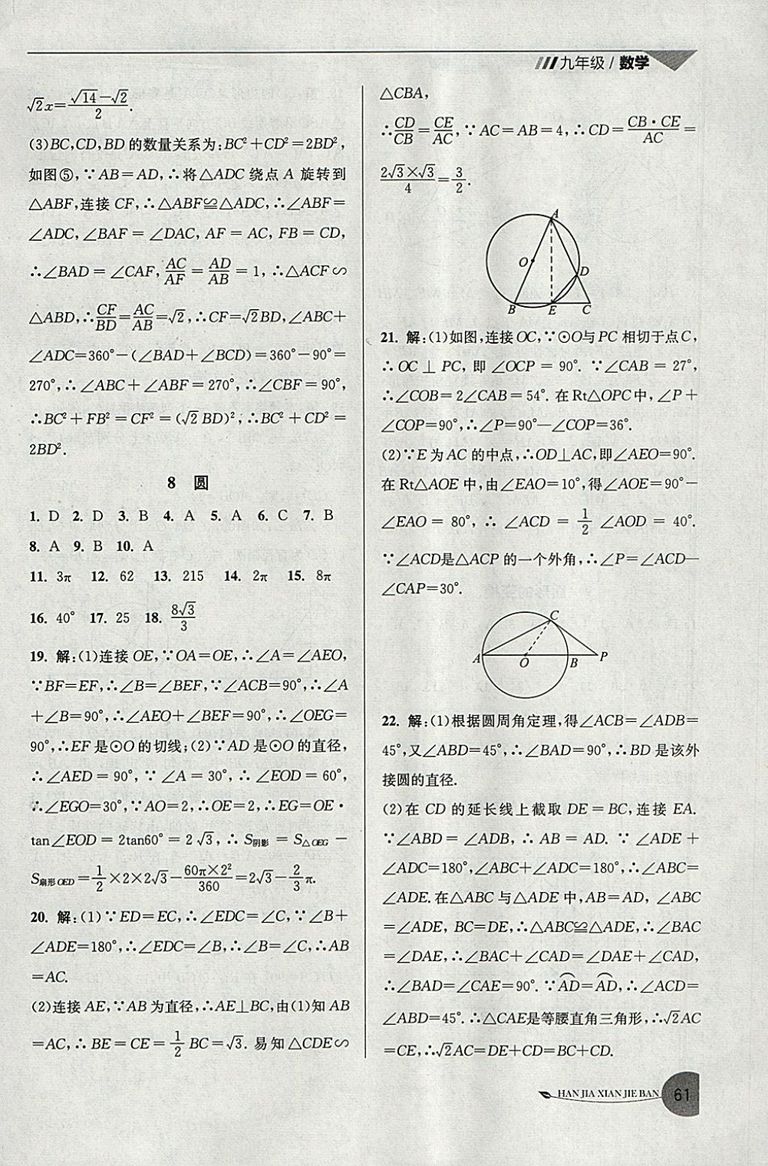 九年级/数学
√2x=(√14-√2)/2.
(3)BC,CD,BD的数量关系为:BC²+CD²=2BD²,
如图⑤,∵AB=AD,∴将△ADC绕点A旋转到
△ABF,连接CF,∴△ABF≌△ADC,∴∠ABF=
∠ADC,∠BAF=∠DAC,AF=AC,FB=CD,
∴∠BAD=∠CAF,AC/AF=AD/AB=1,∴△ACF∽
△ABD,∴CF/BD=AC/AB=√2,∴CF=√2BD,∠ABC+
∠ADC=360°-(∠BAD+∠BCD)=360°-90°=
270°,∴∠ABC+∠ABF=270°,∴∠CBF=90°,
∴BC²+FB²=CF²=(√2BD)²,∴BC²+CD²=
2BD².
8 圆
1. D 2. D 3. B 4. A 5. A 6. C 7. B
8. A 9. B 10. A
11. 3π 12. 62 13. 215 14. 2π 15. 8π
16. 40° 17. 25 18. 8√3/3
19. 解:(1)连接OE,∵OA=OE,∴∠A=∠AEO,
∵BF=EF,∴∠B=∠BEF,∵∠ACB=90°,∴∠A
+∠B=90°,∴∠AEO+∠BEF=90°,∴∠OEG=
90°,∴EF是⊙O的切线;(2)∵AD是⊙O的直径,
∴∠AED=90°,∵∠A=30°,∴∠EOD=60°,
∴∠EGO=30°,∵AO=2,∴OE=2,∴EG=OE·
tan∠EOD=2tan60°=2√3,∴S阴影=S△OEG-
S扇形OED=1/2×2×2√3-(60π×2²)/360=2√3-2/3π.
20. 解:(1)∵ED=EC,∴∠EDC=∠C,∵∠B+
∠ADE=180°,∴∠EDC=∠B,∴∠B=∠C,∴AB
=AC.
(2)连接AE,∵AB为直径,∴AE⊥BC,由(1)知AB
=AC,∴BE=CE=1/2BC=√3.易知△CDE∽
△CBA,
∴CD/CB=CE/AC,∵AC=AB=4,∴CD=(CB·CE)/AC=
(2√3×√3)/4=3/2.
A
O
D
B E C
21. 解:(1)如图,连接OC,∵⊙O与PC相切于点C,
∴OC⊥PC,即∠OCP=90°.∵∠CAB=27°,
∴∠COB=2∠CAB=54°.在Rt△OPC中,∠P+
∠COP=90°,∴∠P=90°-∠COP=36°.
(2)∵E为AC的中点,∴OD⊥AC,即∠AEO=90°.
在Rt△AOE中,由∠EAO=10°,得∠AOE=90°-
∠EAO=80°,∴∠ACD=1/2∠AOD=40°.
∵∠ACD是△ACP的一个外角,∴∠P=∠ACD-
∠CAP=30°.
C
A O B P
22. 解:(1)根据圆周角定理,得∠ACB=∠ADB=
45°,又∠ABD=45°,∴∠BAD=90°,∴BD是该外
接圆的直径.
(2)在CD的延长线上截取DE=BC,连接EA.
∵∠ABD=∠ADB,∴AB=AD.∵∠ADE+
∠ADC=180°,∠ABC+∠ADC=180°,∴∠ABC=
∠ADE.在△ABC与△ADE中,AB=AD,∠ABC
=∠ADE,BC=DE,∴△ABC≌△ADE,∴∠BAC
=∠DAE,∴∠BAC+∠CAD=∠DAE+∠CAD,
∴∠BAD=∠CAE=90°.∵AD⌒=AD⌒,∴∠ACD=
∠ABD=45°.∴△CAE是等腰直角三角形,∴√2AC
=CE,∴√2AC=DE+CD=BC+CD.
HAN JIA XIAN JIE BAN 61